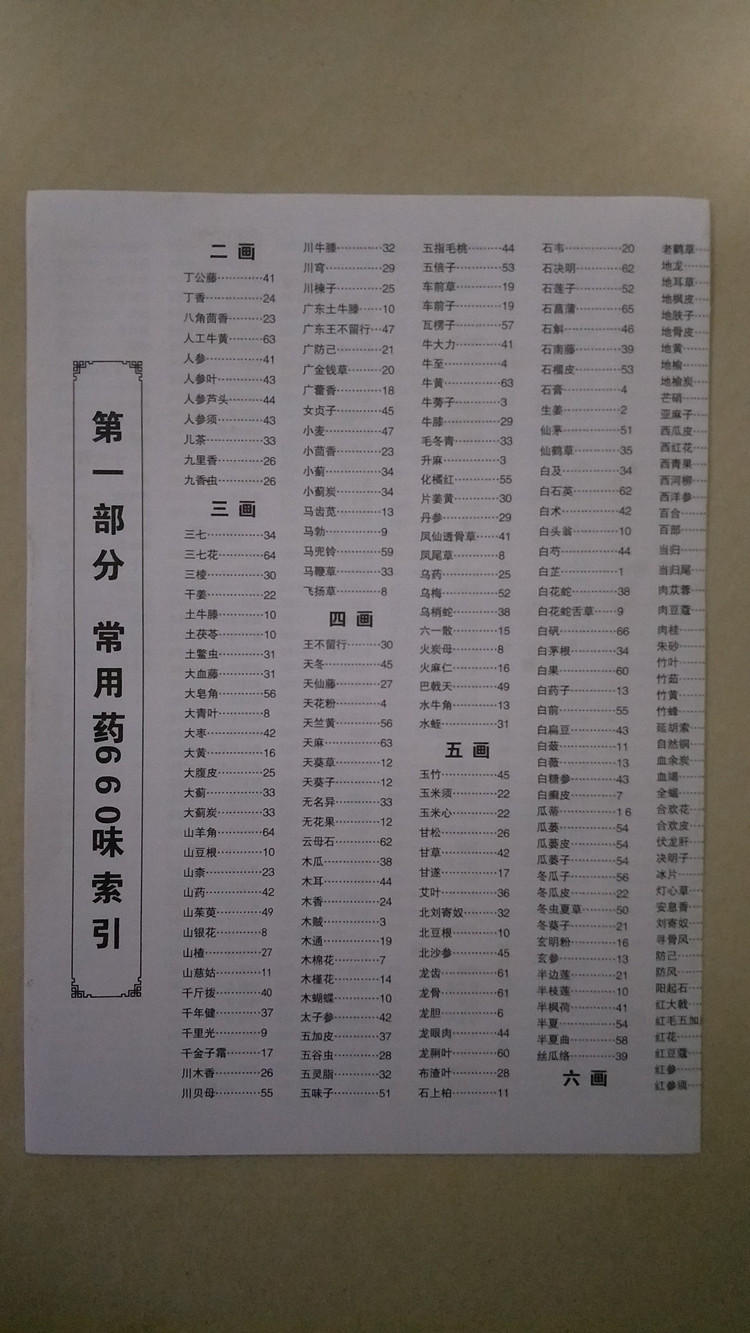 第一部分 常用药660味索引
二画
丁公藤…………41
丁香……………24
八角茴香………23
人工牛黄………63
人参……………41
人参叶…………43
人参芦头………44
人参须…………43
儿茶……………33
九里香…………26
九香虫…………26
三画
三七……………34
三七花…………64
三棱……………30
干姜……………22
土牛膝…………10
土茯苓…………10
土鳖虫…………31
大血藤…………31
大皂角…………56
大青叶…………8
大枣……………42
大黄……………16
大腹皮…………25
大蓟……………33
大蓟炭…………33
山羊角…………64
山豆根…………10
山柰……………23
山药……………42
山茱萸…………49
山银花…………8
山楂……………27
山慈姑…………11
千斤拔…………40
千年健…………37
千里光…………9
千金子霜………17
川木香…………26
川贝母…………55
川牛膝…………32
川芎……………29
川楝子…………25
广东土牛膝……10
广东王不留行…47
广防己…………21
广金钱草………20
广藿香…………18
女贞子…………45
小麦……………47
小茴香…………23
小蓟……………34
小蓟炭…………34
马齿苋…………13
马勃……………9
马兜铃…………59
马鞭草…………33
飞扬草…………8
四画
王不留行………30
天冬……………45
天仙藤…………27
天花粉…………4
天竺黄…………56
天麻……………63
天葵草…………12
天葵子…………12
无名异…………33
无花果…………12
云母石…………62
木瓜……………38
木耳……………44
木香……………24
木贼……………3
木通……………19
木棉花…………7
木槿花…………14
木蝴蝶…………10
太子参…………42
五加皮…………37
五谷虫…………28
五灵脂…………32
五味子…………51
五指毛桃………44
五倍子…………53
车前草…………19
车前子…………19
瓦楞子…………57
牛大力…………41
牛至……………4
牛黄……………63
牛蒡子…………3
牛膝……………29
毛冬青…………33
升麻……………3
化橘红…………55
片姜黄…………30
丹参……………29
凤仙透骨草……41
凤尾草…………8
乌药……………25
乌梅……………52
乌梢蛇…………38
六一散…………15
火炭母…………8
火麻仁…………16
巴戟天…………49
水牛角…………13
水蛭……………31
五画
玉竹……………45
玉米须…………22
玉米心…………22
甘松……………26
甘草……………42
甘遂……………17
艾叶……………36
北刘寄奴………32
北豆根…………10
北沙参…………45
龙齿……………61
龙骨……………61
龙胆……………6
龙眼肉…………44
龙脷叶…………60
布渣叶…………28
石上柏…………11
石韦……………20
石决明…………62
石莲子…………52
石菖蒲…………65
石斛……………46
石南藤…………39
石榴皮…………53
石膏……………4
生姜……………2
仙茅……………51
仙鹤草…………35
白及……………34
白石英…………62
白术……………42
白头翁…………10
白芍……………44
白芷……………1
白花蛇…………38
白花蛇舌草……9
白矾……………66
白茅根…………34
白果……………60
白药子…………13
白前……………55
白扁豆…………43
白蔹……………11
白薇……………13
白糖参…………43
白癣皮…………7
瓜蒂……………16
瓜蒌……………54
瓜蒌皮…………54
瓜蒌子…………54
冬瓜子…………56
冬瓜皮…………22
冬虫夏草………50
冬葵子…………21
玄明粉…………16
玄参……………13
半边莲…………21
半枝莲…………10
半枫荷…………41
半夏……………54
半夏曲…………58
丝瓜络…………39
六画
老鹳草…
地龙…
地耳草…
地枫皮…
地肤子…
地骨皮…
地黄…
地榆…
地榆炭…
芒硝…
亚麻子…
西瓜皮…
西红花…
西青果…
西河柳…
西洋参…
百合…
百部…
当归…
当归尾…
肉苁蓉…
肉豆蔻…
肉桂…
朱砂…
竹叶…
竹茹…
竹黄…
竹蜂…
延胡索…
自然铜…
血余炭…
血竭…
全蝎…
合欢花…
合欢皮…
伏龙肝…
决明子…
冰片…
灯心草…
安息香…
刘寄奴…
寻骨风…
防己…
防风…
阳起石…
红大戟…
红毛五加
红花…
红豆蔻…
红参…
红参须…